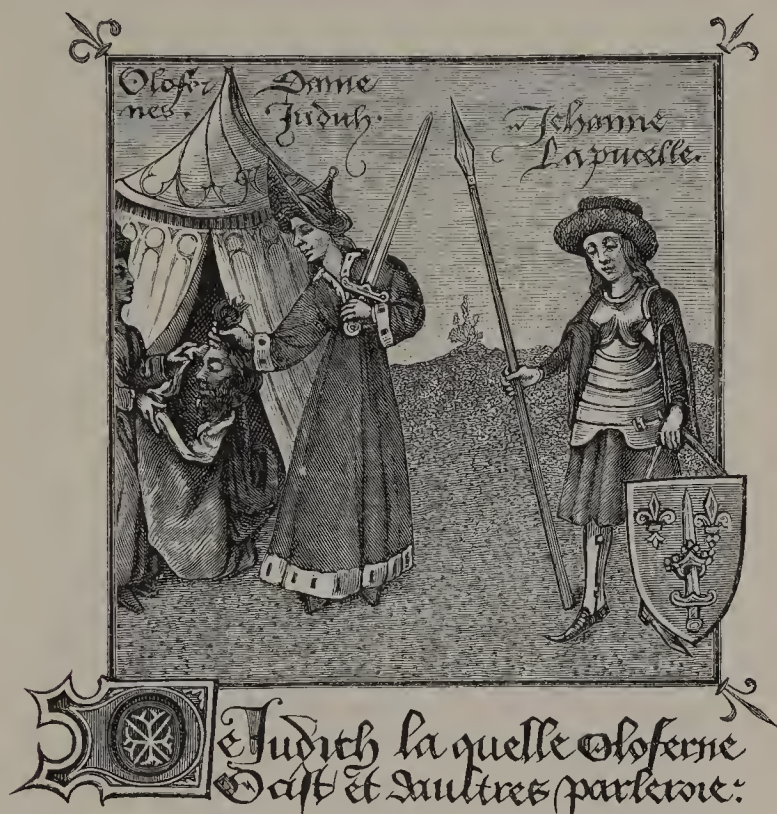 Olofer
nes.
Dame
Judith.
Jehanne
Lapucelle.
De Judith la quelle Oloferne
Ocist et daultres parleroie: